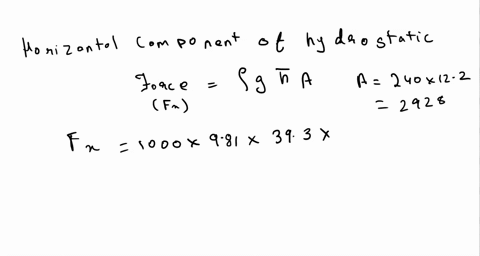 Horizontal component of hydrostatic
Force = ρg h̄ A A = 240 × 12.2
(Fx) = 2928
Fx = 1000 × 9.81 × 39.3 ×